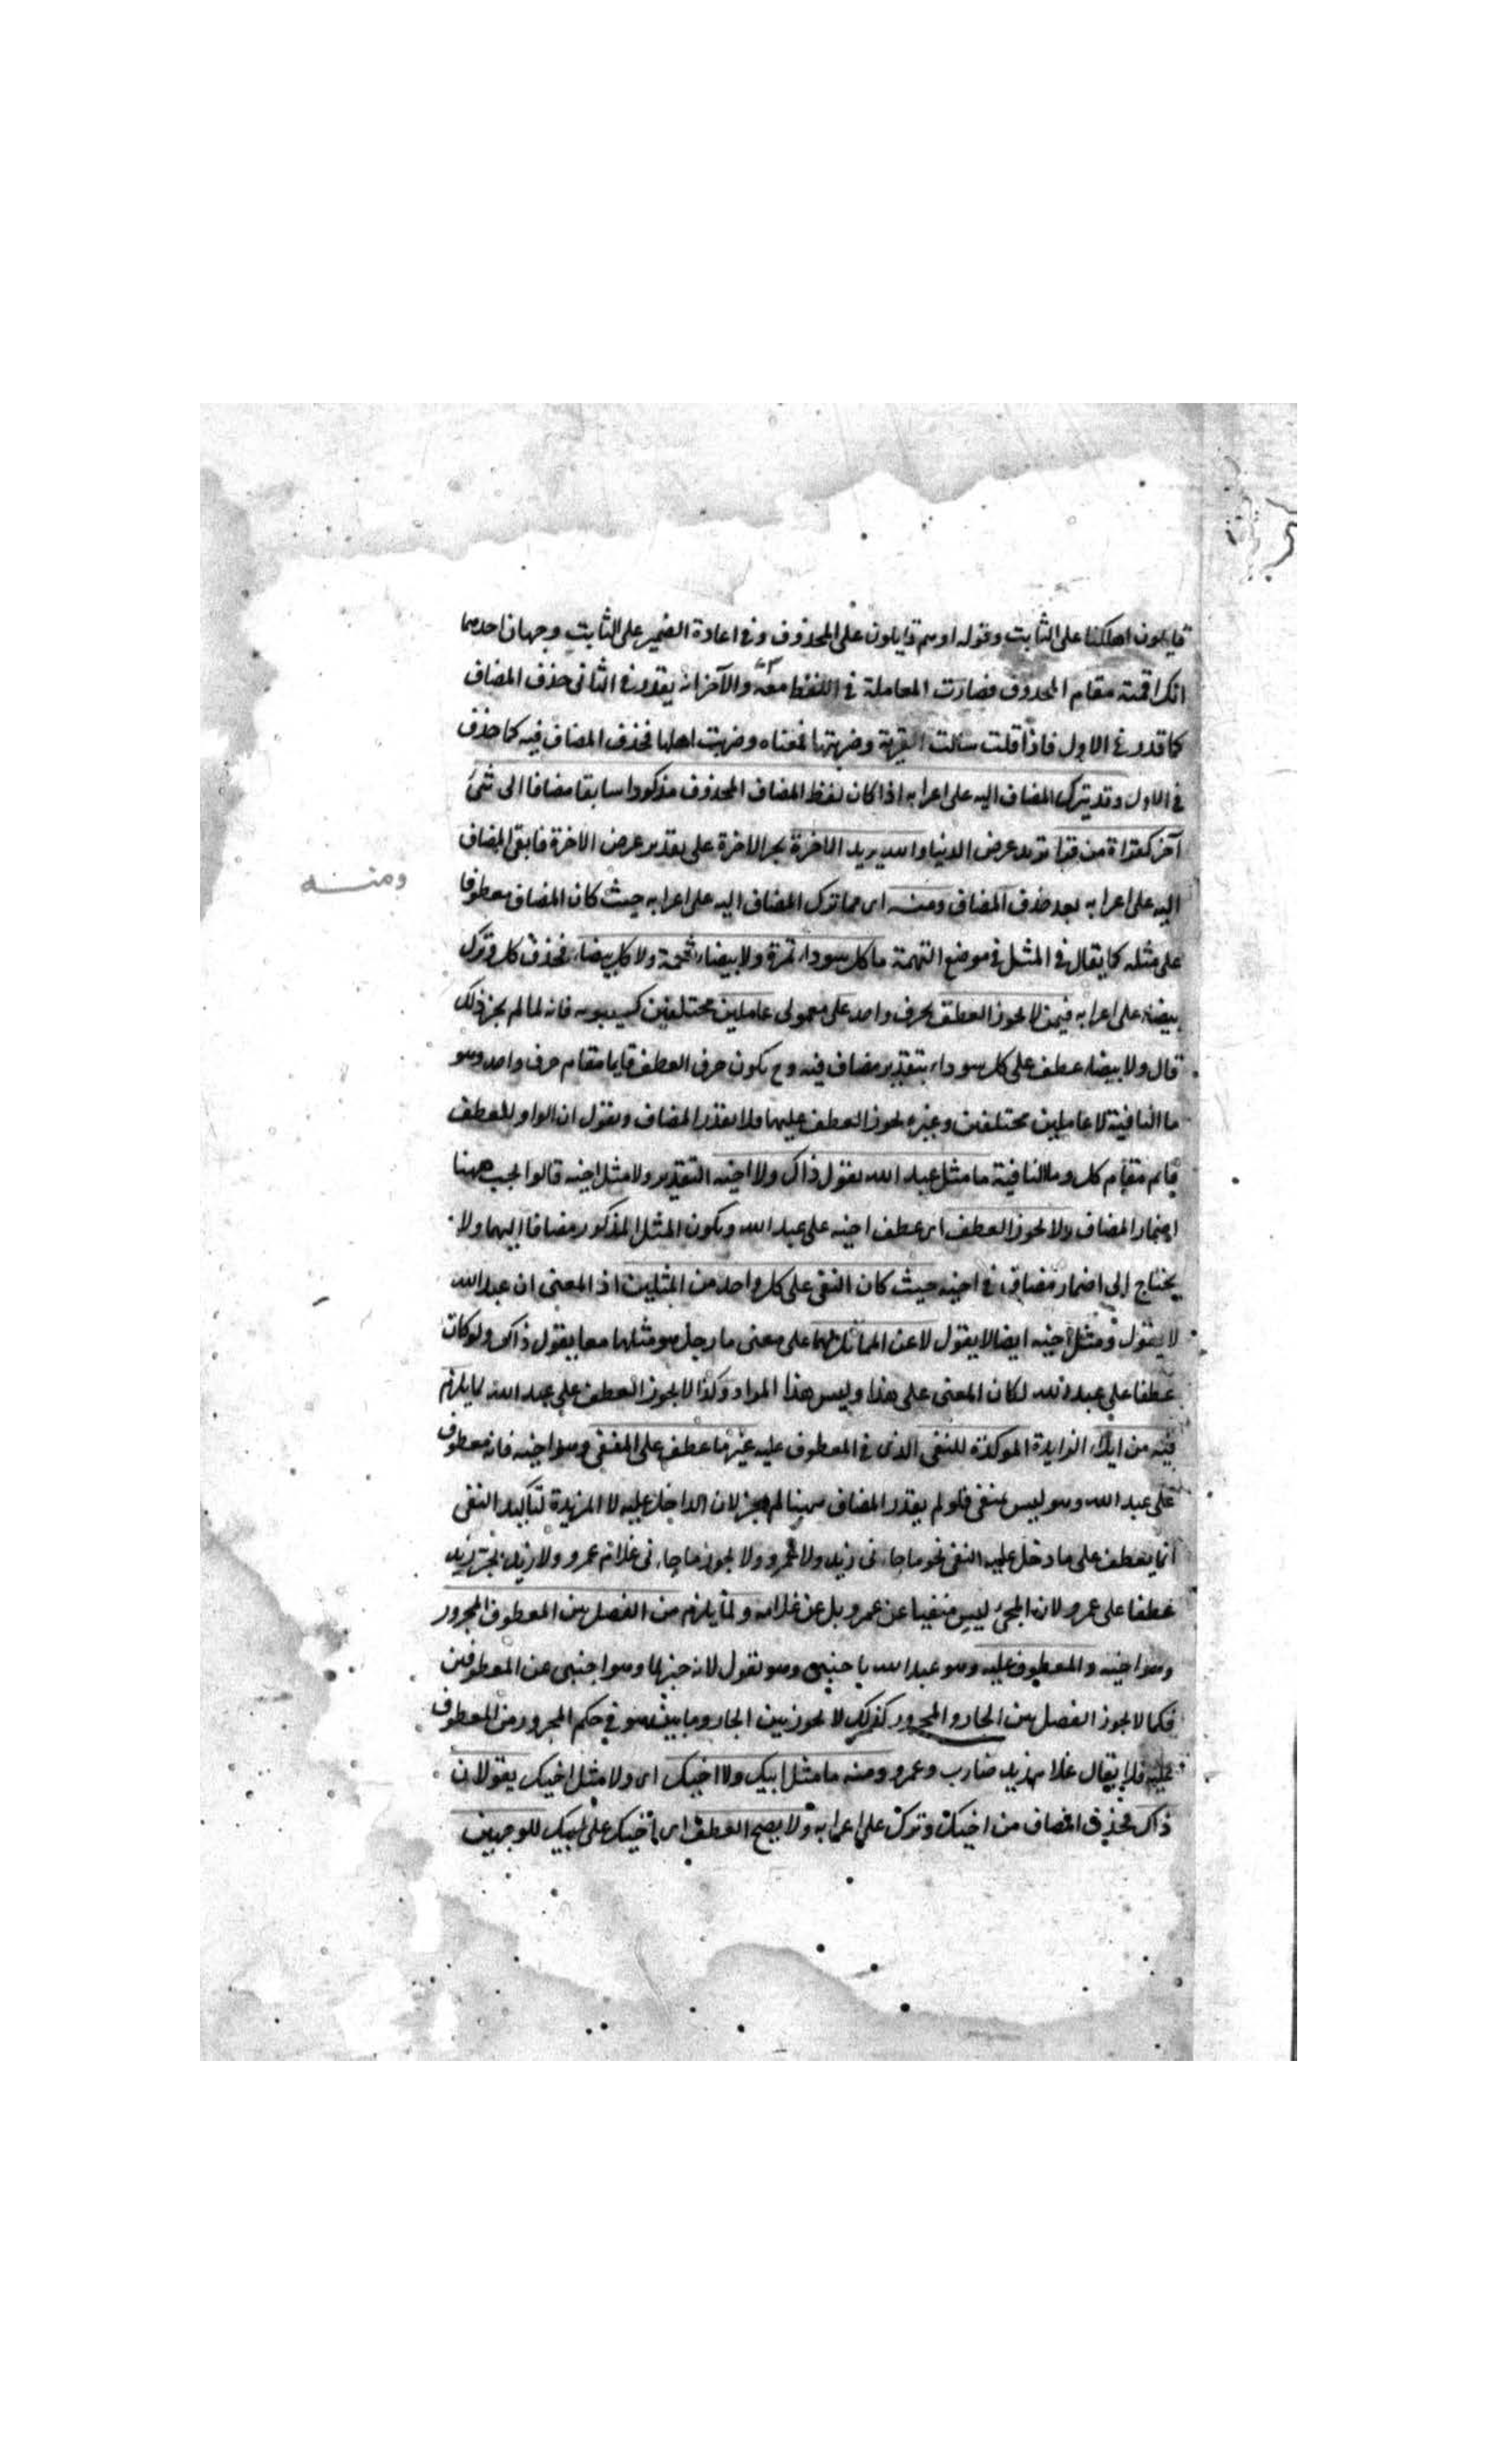 قايلون اهلكنا على الثابت وقوله او هم قايلون على المحذوف وفى اعادة الضمير على الثابت وجهان احدهما
انك اقمته مقام المحذوف فصارت المعاملة فى اللفظ معه والآخر انه يقدر فى الثانى حذف المضاف
كما قدر فى الاول فاذا قلت سالت القرية وضربتها فمعناه وضربت اهلها فحذف المضاف فيه كما حذف
فى الاول وقد يترك المضاف اليه على اعرابه اذا كان لفظ المضاف المحذوف مذكورا سابقا مضافا الى شئ
آخر كقراة من قرا تريدون عرض الدنيا والله يريد الاخرة بجر الاخرة على تقدير عرض الاخرة فابقى المضاف
اليه على اعرابه بعد حذف المضاف ومنه اى مما ترك المضاف اليه على اعرابه حيث كان المضاف معطوفا
ومنه
على مثله كما يقال فى المثل فى موضع التهمة ما كل سوداء تمرة ولا بيضاء شحمة ولا كل بيضاء فحذف كل وترك
بيضاء على اعرابه فيمن لا يجوز العطف بحرف واحد على معمولى عاملين مختلفين كسيبويه فانه لما لم يجز ذلك
قال ولا بيضاء عطف على كل سوداء بتقدير مضاف فيه وح يكون حرف العطف قايما مقام حرف واحد وهو
ما النافية لا عاملين مختلفين وغيره يجوز العطف عليهما ولا يقدر المضاف ويقول ان الواو للعطف
قايم مقام كل وما النافية ما مثل عبد الله يقول ذاك ولا اخيه التقدير ولا مثل اخيه قالوا يجب ههنا
اضمار المضاف ولا يجوز العطف اى عطف اخيه على عبد الله ويكون المثل المذكور مضافا اليهما ولا
يحتاج الى اضمار مضاف فى اخيه حيث كان النفى على كل واحد من المثلين اذ المعنى ان عبد الله
لا يقول ومثل اخيه ايضا لا يقول لا عن المماثل لهما على معنى ما رجل هو مثلهما معا يقول ذاك ولو كان
عطفا على عبد الله لكان المعنى على هذا وليس هذا المراد وكذا لا يجوز العطف على عبد الله لما يلزم
فيه من ايلاء الزايدة الموكدة للنفى الذى فى المعطوف عليه غير ما عطف على المنفى وهو اخيه فانه معطوف
على عبد الله وهو ليس بمنفى فلو لم يقدر المضاف ههنا لم يجز لان الداخل عليه لا المزيدة لتاكيد النفى
انما يعطف على ما دخل عليه النفى نحو ما جاءنى زيد ولا عمرو ولا يجوز ما جاءنى غلام عمرو ولا زيد بجر زيد
عطفا على عمرو لان المجئ ليس منفيا عن عمرو بل عن غلامه ولما يلزم من الفصل بين المعطوف المجرور
وهو اخيه والمعطوف عليه وهو عبد الله باجنبى وهو يقول لانه خبر لما وهو اجنبى عن المعطوفين
فكما لا يجوز الفصل بين الجار والمجرور كذلك لا يجوز بين الجار وما هو فى حكم المجرور من المعطوف
عليه فلا يقال غلام زيد ضارب وعمرو ومنه ما مثل ابيك ولا اخيك اى ولا مثل اخيك يقولان
ذاك فحذف المضاف من اخيك وترك على اعرابه ولا يصح العطف اى اخيك على ابيك للوجهين